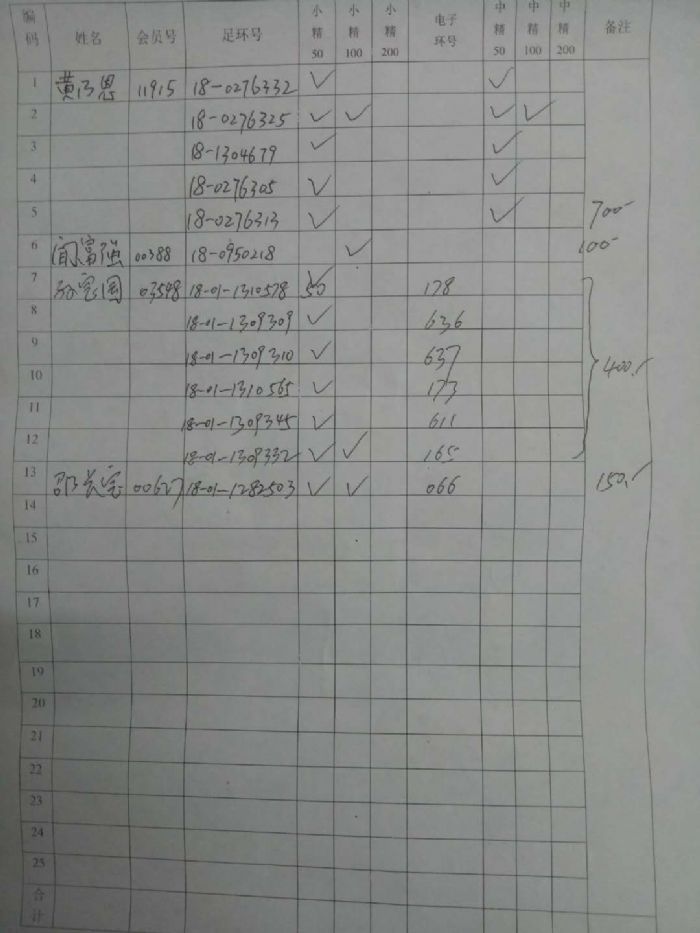 编码 姓名 会员号 足环号 小精50 小精100 小精200 电子环号 中精50 中精100 中精200 备注
1 黄乃恩 11915 18-0276332 ✓ ✓
2 18-0276325 ✓ ✓ ✓ ✓
3 18-1304679 ✓ ✓
4 18-0276305 ✓ ✓
5 18-0276313 ✓ ✓ 700-
6 闻富强 00388 18-0950218 ✓ 100-
7 孙宪国 03548 18-01-1310578 50 ✓ 178
8 18-01-1309309 ✓ 636
9 18-01-1309310 ✓ 637 400.
10 18-01-1310565 ✓ 173
11 18-01-1309345 ✓ 611
12 18-01-1309332 ✓ ✓ 165
13 邵长宝 00627 18-01-1282503 ✓ ✓ 066 150.
14
15
16
17
18
19
20
21
22
23
24
25
合计